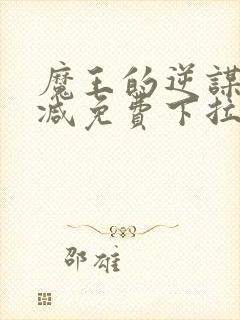 魔王的逆謀
减免費下拉
邵雄